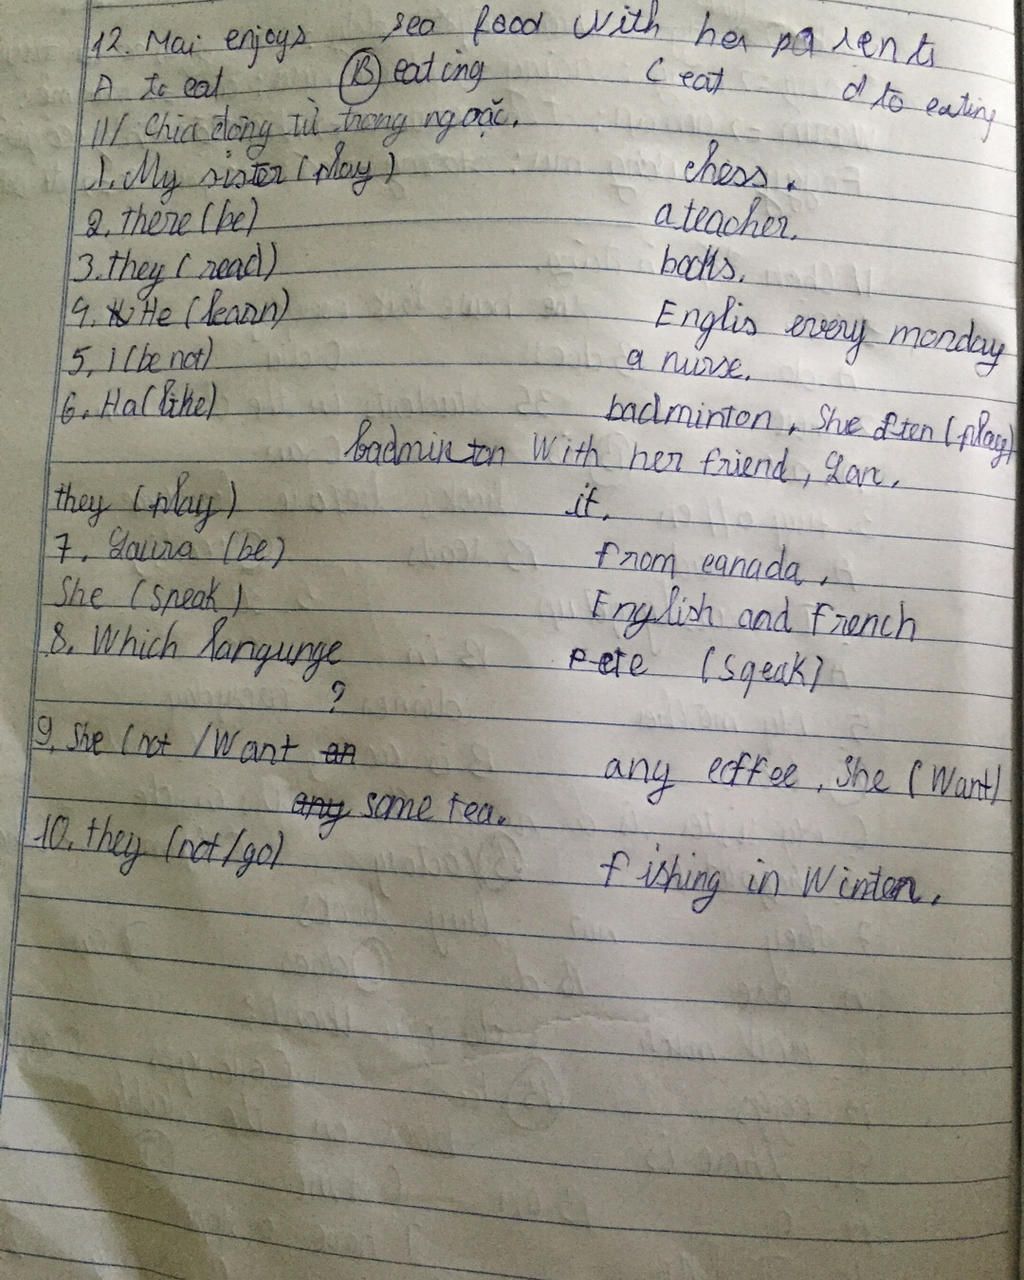 12. Mai enjoys sea food with her parents
A to eat B eating C eat d to eating
II/ Chia động từ trong ngoặc.
1. My sister (play) chess.
2. there (be) a teacher.
3. they (read) books.
4. He (learn) Englis every monday
5, I (be not) a nurse.
6. Ha (like) badminton, She often (play)
badminton With her friend, Lan.
they (play) it.
7. Laura (be) from canada.
She (speak) English and French
8. Which langunge Pete (speak)
?
9. She (not / Want an any coffee, She (Want)
any some tea.
10. they (not/go) fishing in Winter.